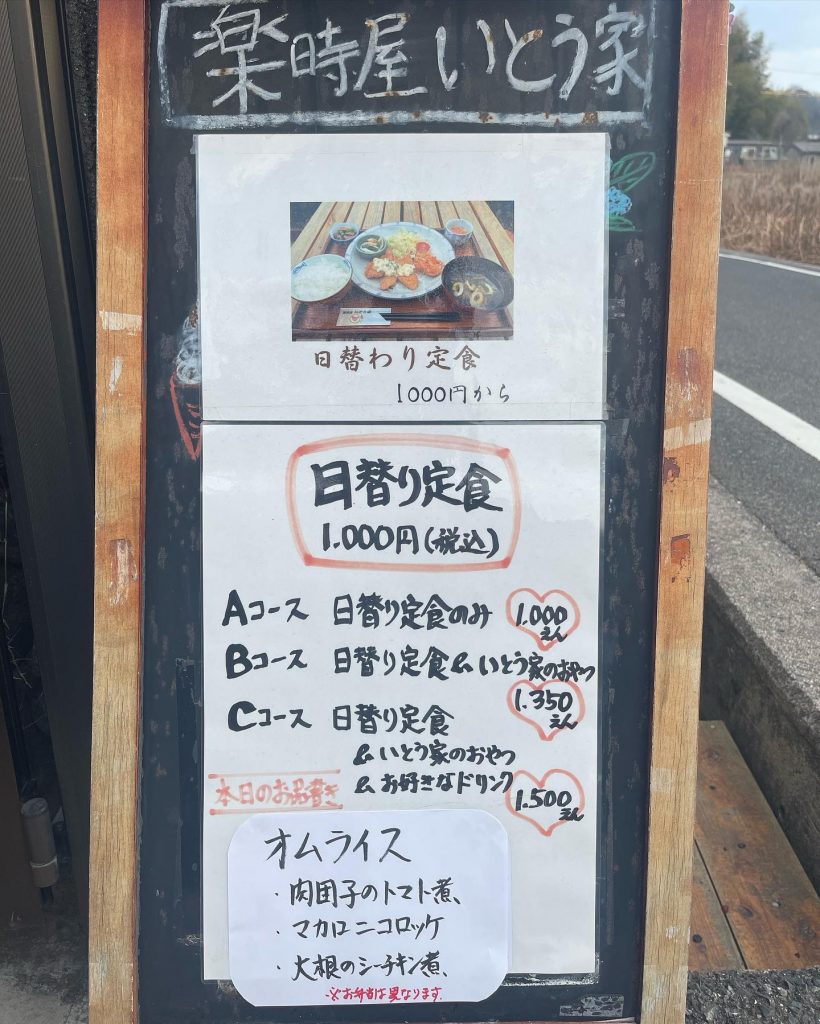 楽時屋いとう家
日替わり定食
1000円から
日替り定食
1.000円(税込)
Aコース 日替り定食のみ 1.000えん
Bコース 日替り定食&いとう家のおやつ
1.350えん
Cコース 日替り定食
&いとう家のおやつ
&お好きなドリンク
1.500えん
本日のお品書き
オムライス
・肉団子のトマト煮、
・マカロニコロッケ
・大根のシーチキン煮、
※お弁当は異なります。